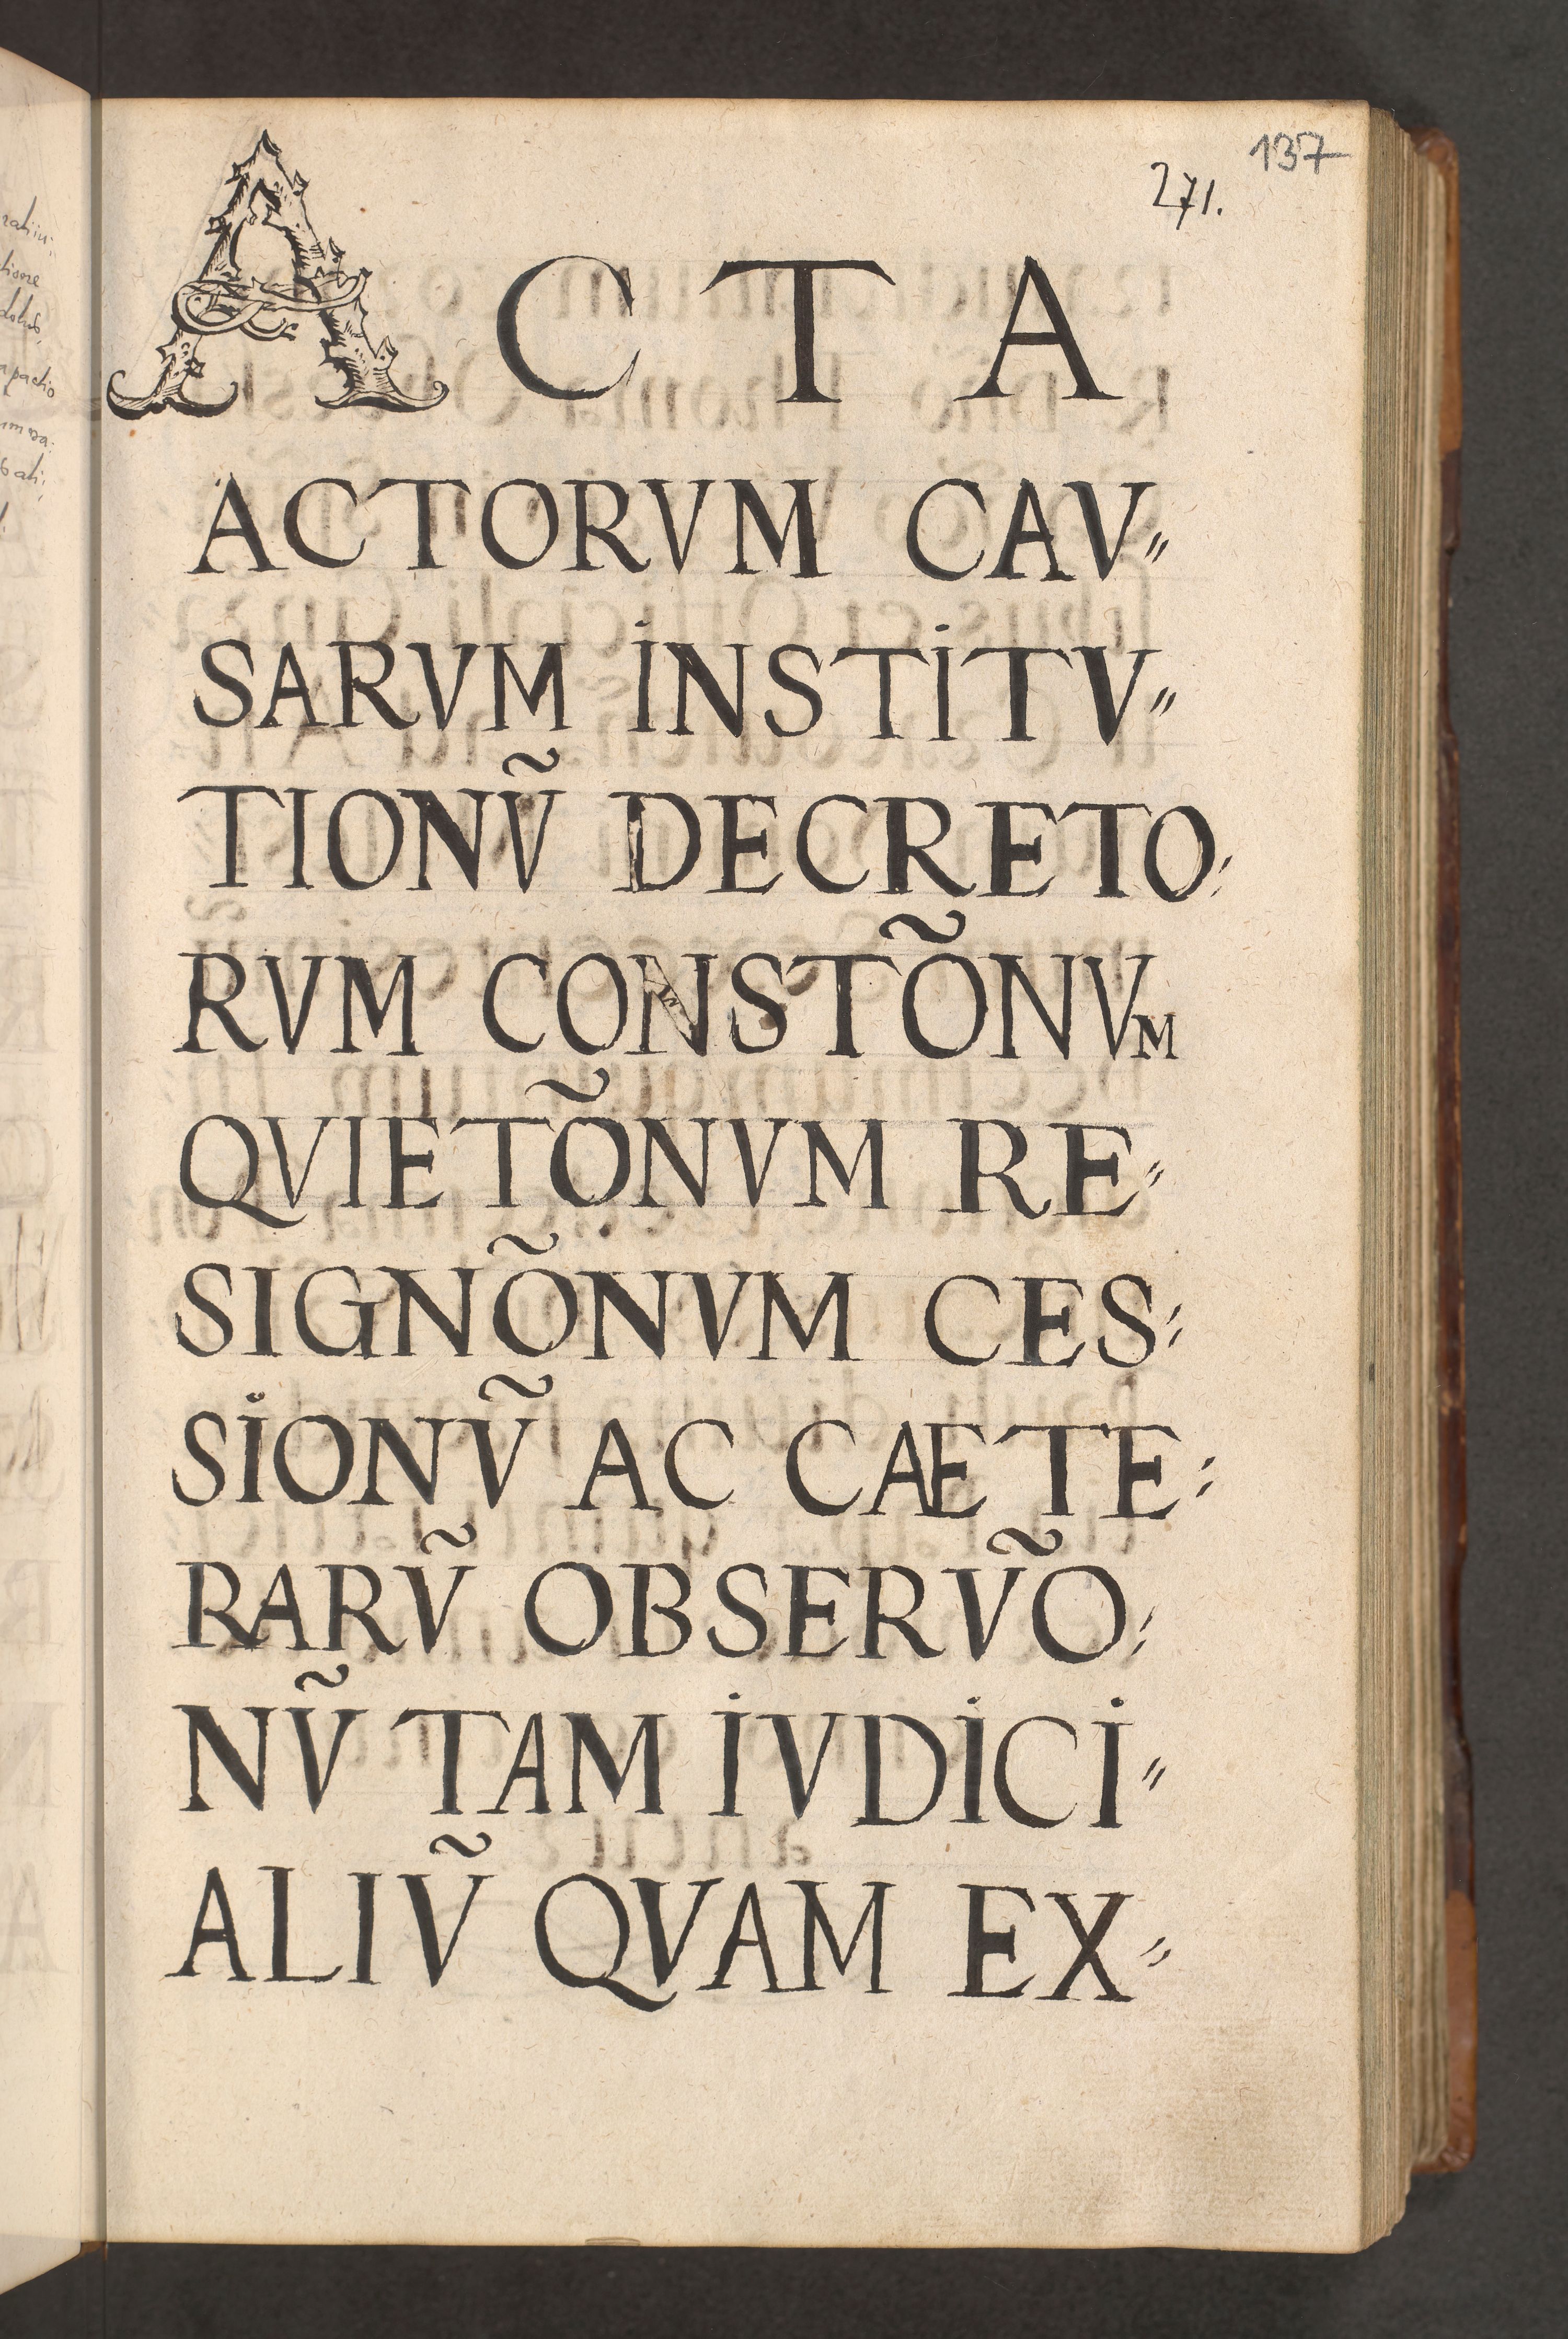 137
271.
ACTA
ACTORVM CAV„
SARVM INSTITV„
TIONṼ DECRETO„
RVM CONSTÕNVM
QVIETÕNVM RE„
SIGNÕNVM CES„
SIONṼ AC CÆTE„
RARṼ OBSERṼO„
NṼ TAM IVDICI„
ALIṼ QVAM EX„